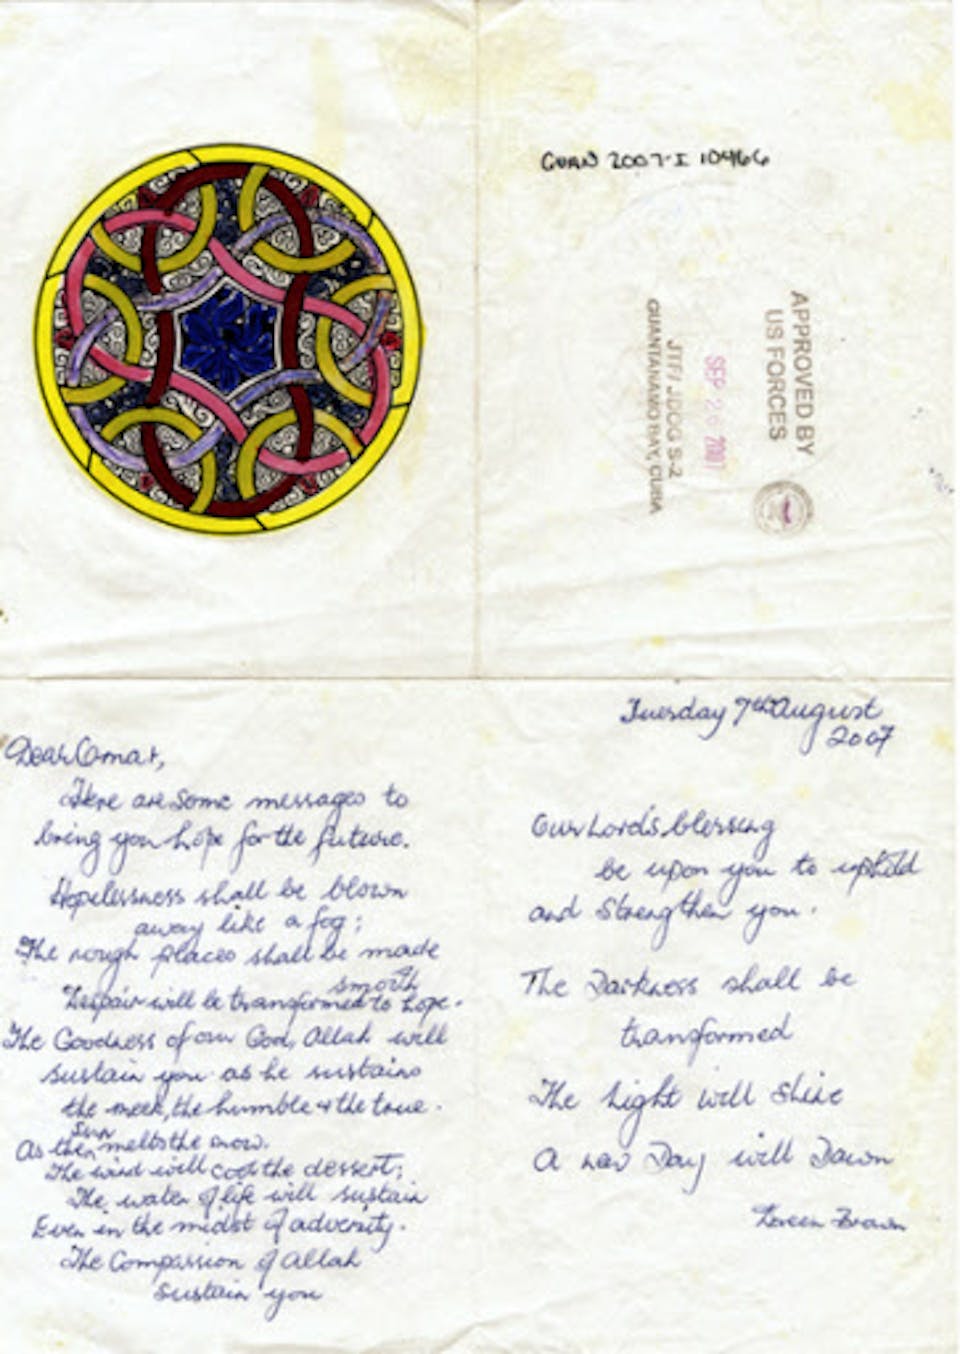 GUAN 2007-I 10466
APPROVED BY
US FORCES
SEP 26 2007
JTF/ JDOG S-2
GUANTANAMO BAY, CUBA
Tuesday 7th August
2007
Dear Omar,
Here are some messages to
bring you hope for the future.
Hopelessness shall be blown
away like a fog;
The rough places shall be made
smooth
Despair will be transformed to hope.
The Goodness of our God, Allah will
sustain you as he sustains
the meek, the humble & the true.
As the sun melts the snow.
The wind will cool the dessert;
The water of life will sustain
Even in the midst of adversity.
The Compassion of Allah
sustain you
Our Lord's blessing
be upon you to uphold
and strengthen you.
The Darkness shall be
transformed
The Light will Shine
A new Day will Dawn
Brown